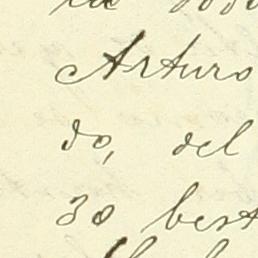 Arturo
do, del
30 best